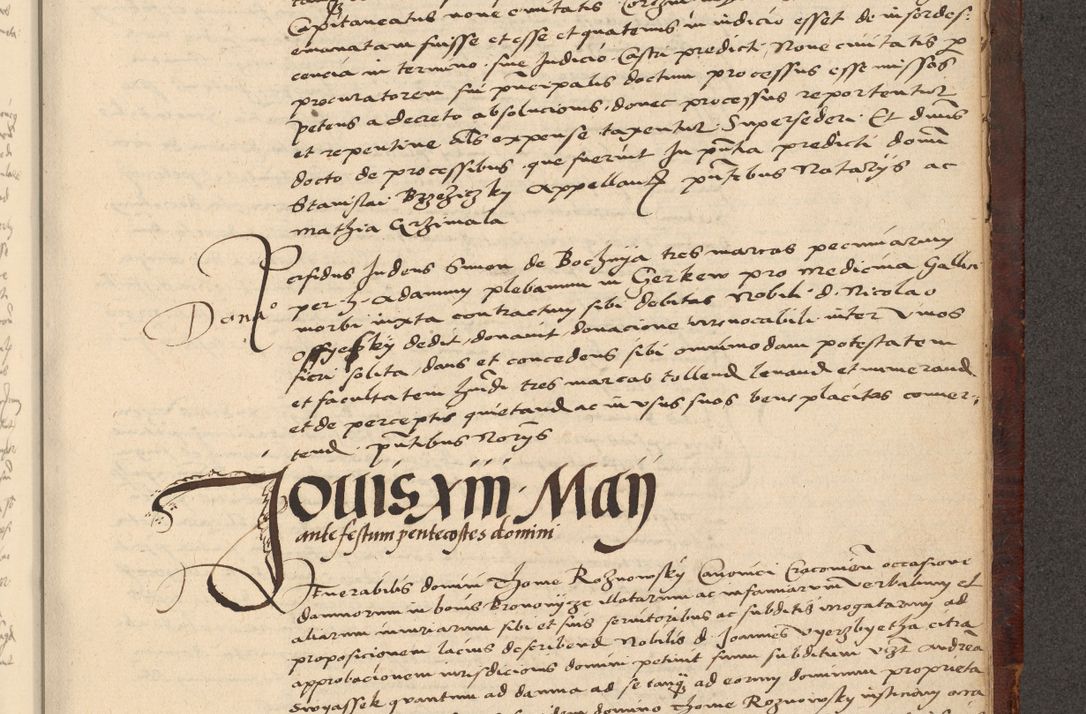 Capitaneatus nove civitatis
emanatam fuisse et esse et quatenus in iudicio esset de in sordes-
cencia in termino sive Judicio Castri predicti Nove civitatis p
procuratorem sui principalis doctum processus esse missos
petens a decreto absolucionis, donec processus reportentur
et repentine als expense taxentur. Supersederi Et dnus
docto de processibus que fuerint In pntia predicti domi
Stanislai Brzeziczky Appellant pntibus Notarijs ac
Mathia Grzimala
Perfidus Judeus Simon de Bochnya tres marcas pecuniarum
Dona°
per h. Adamum plebanum in Gerkew pro medicina Gallici
morbi iuxta contractum sibi debitas Nobili d. Nicolao
dedit, donavit donacione irrevocabili inter vivos
fieri solita, dans et concedens sibi omnimodam potestatem
et facultatem hmdi tres marcas tollend levand et numerand
et de perceptis quietand ac in usus suos bene placitos conver-
tend. pntibus Norijs
Jovis xiii Maij
ante festum pentecostes domini
Venerabilis domini Thome Roznowsky Canonici Cracovien occasione
damnorum in bonis illatarum ac infamiarum verbalium et
aliarum iniuriarum sibi et suis servitoribus ac subditis irrogatarum ad
proposicionem lacius describend Nobilis d. Joannes citra
approbacionem iurisdicionis domini petivit suum subditum vzt Andrea
quantum ad damna ad se tanq ad eorum dominum proprieta
domino Thome Roznowsky iusticiam